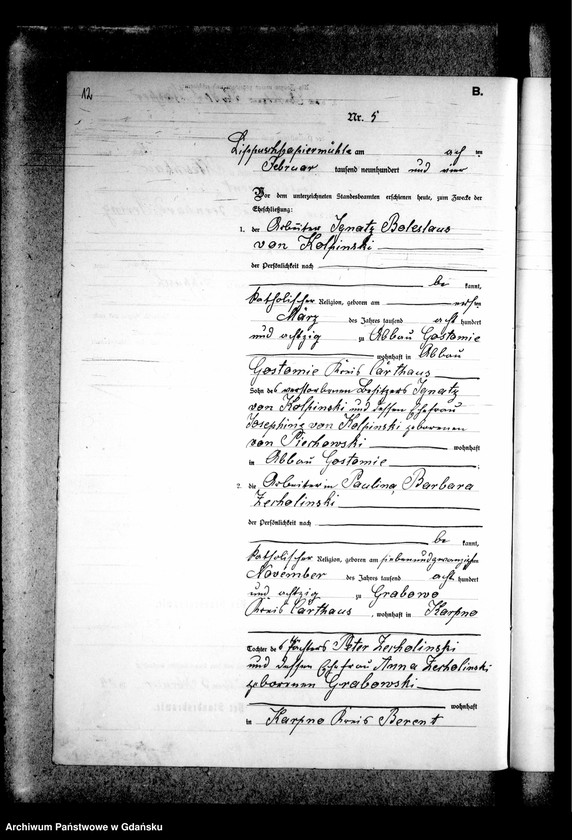 12
B.
Nr. 5
Lippuschpapiermühle am ach ten
Februar tausend neunhundert und vier
Vor dem unterzeichneten Standesbeamten erschienen heute, zum Zwecke der
Eheschließung:
1. der Arbeiter Ignatz Boleslaus
von Kolpinski
der Persönlichkeit nach
be kannt,
katholischer Religion, geboren am
März des Jahres tausend acht hundert
und achtzig zu Abbau Gostomie
wohnhaft in Abbau
Gostomie Kreis Carthaus
Sohn des verstorbenen Besitzers Ignatz
von Kolpinski und dessen Ehefrau
Josephine von Kolpinski geborenen
von Piechowski wohnhaft
in Abbau Gostomie ;
2. die Arbeiterin Paulina, Barbara
Zecholinski
der Persönlichkeit nach
be kannt,
katholischer Religion, geboren am siebenundzwanzigsten
November des Jahres tausend acht hundert
und achtzig zu Grabowo
Kreis Carthaus, wohnhaft in Karpno
Tochter des Pächters Peter Zecholinski
und dessen Ehefrau Anna Zecholinski
geborenen Grabowski
wohnhaft
in Karpno Kreis Berent
Archiwum Państwowe w Gdańsku